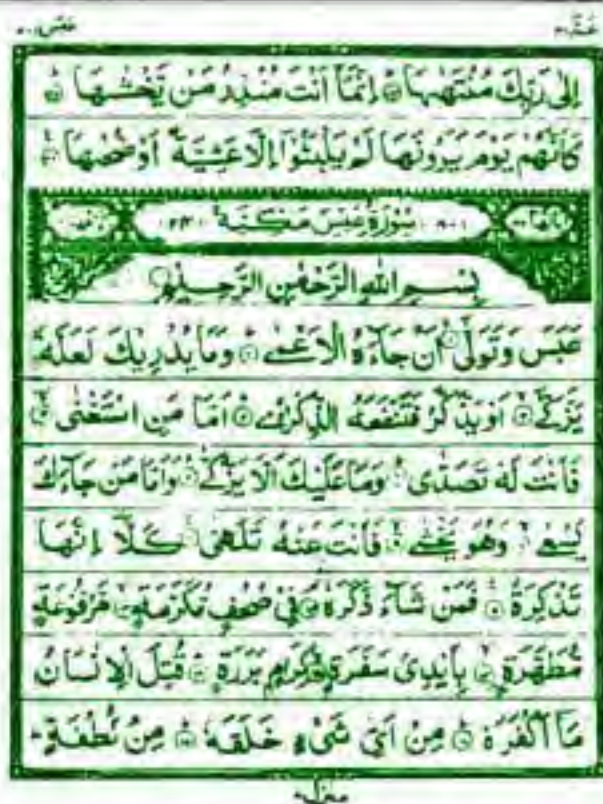 عَمَّ ٣٠ عَبَسَ ٨٠
اِلٰى رَبِّكَ مُنْتَهٰىهَا ۞ اِنَّمَاۤ اَنْتَ مُنْذِرُ مَنْ يَّخْشٰىهَا ۞
كَاَنَّهُمْ يَوْمَ يَرَوْنَهَا لَمْ يَلْبَثُوْۤا اِلَّا عَشِيَّةً اَوْ ضُحٰىهَا ۞
(٨٠) سُوْرَةُ عَبَسَ مَكِّيَّةٌ (٢٤)
بِسْمِ اللّٰهِ الرَّحْمٰنِ الرَّحِيْمِ
عَبَسَ وَتَوَلّٰىۤ ۞ اَنْ جَآءَهُ الْاَعْمٰى ۞ وَمَا يُدْرِيْكَ لَعَلَّهٗ
يَزَّكّٰىۤ ۞ اَوْ يَذَّكَّرُ فَتَنْفَعَهُ الذِّكْرٰى ۞ اَمَّا مَنِ اسْتَغْنٰى ۞
فَاَنْتَ لَهٗ تَصَدّٰى ۞ وَمَا عَلَيْكَ اَلَّا يَزَّكّٰى ۞ وَاَمَّا مَنْ جَآءَكَ
يَسْعٰى ۞ وَهُوَ يَخْشٰى ۞ فَاَنْتَ عَنْهُ تَلَهّٰى ۞ كَلَّاۤ اِنَّهَا
تَذْكِرَةٌ ۞ فَمَنْ شَآءَ ذَكَرَهٗ ۞ فِيْ صُحُفٍ مُّكَرَّمَةٍ ۞ مَّرْفُوْعَةٍ
مُّطَهَّرَةٍ ۞ بِاَيْدِيْ سَفَرَةٍ ۞ كِرَامٍۭ بَرَرَةٍ ۞ قُتِلَ الْاِنْسَانُ
مَاۤ اَكْفَرَهٗ ۞ مِنْ اَيِّ شَيْءٍ خَلَقَهٗ ۞ مِنْ نُّطْفَةٍ
منزل